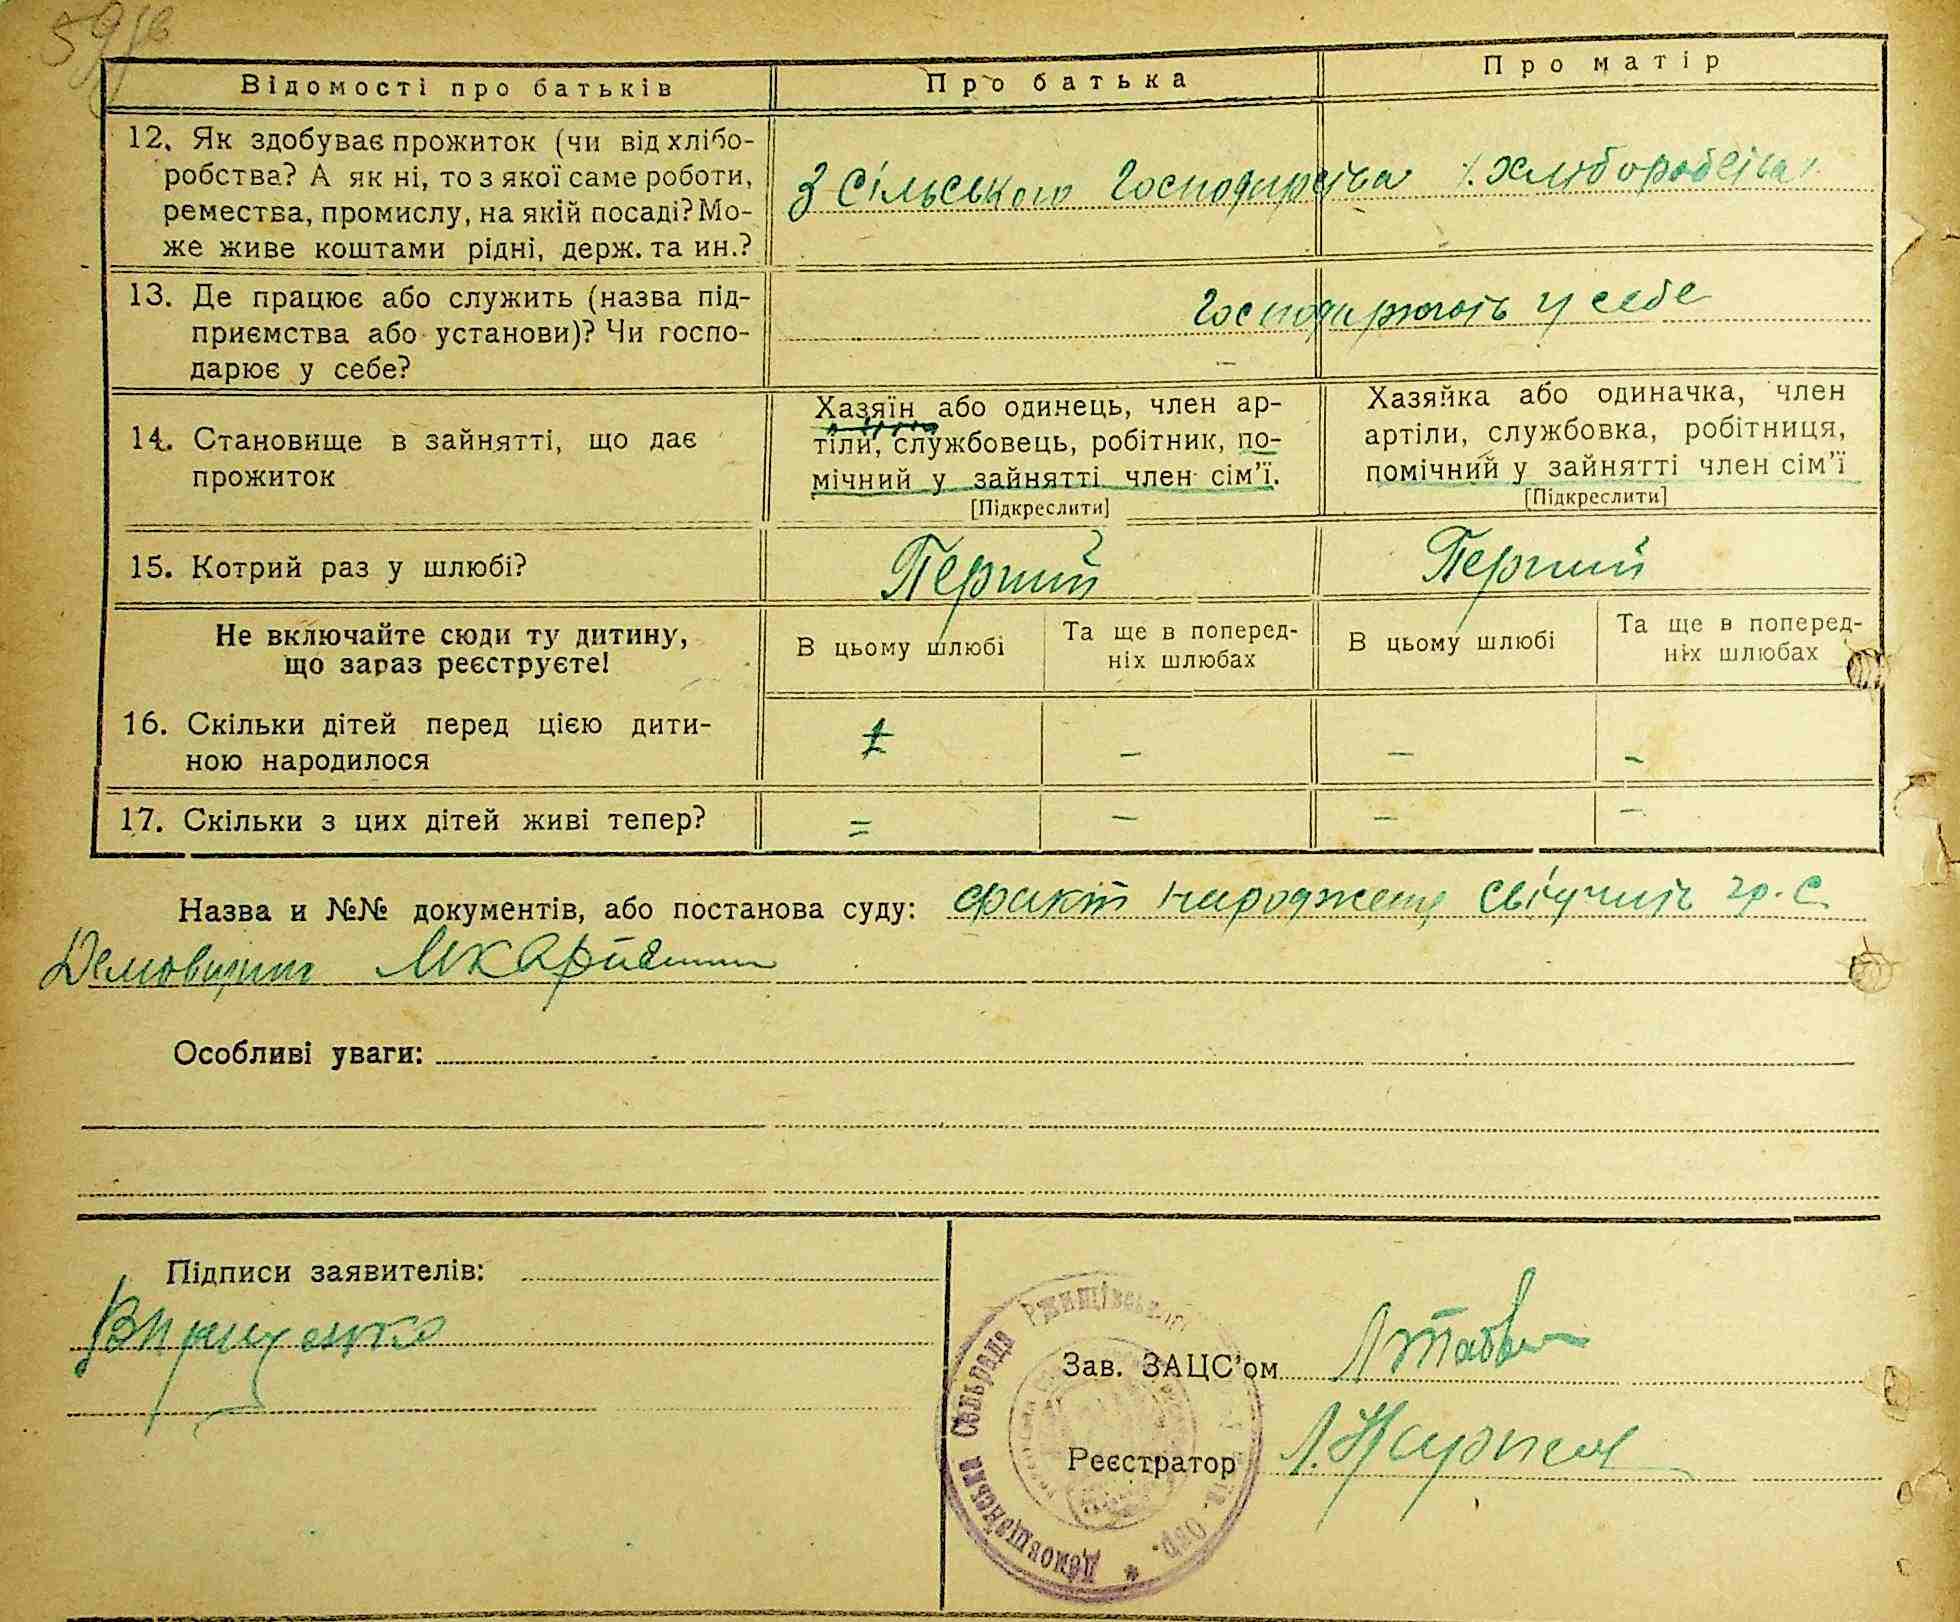 Відомості про батьків
Про батька
Про матір
12. Як здобуває прожиток (чи від хлібо-
робства? А як ні, то з якої саме роботи,
ремества, промислу, на якій посаді? Мо-
же живе коштами рідні, держ. та ин.?
З сільського господарства /.хліборобства/.
13. Де працює або служить (назва під-
приємства або установи)? Чи госпо-
дарює у себе?
Господарюють у себе
14. Становище в зайнятті, що дає
прожиток
Хазяїн або одинець, член ар-
тіли, службовець, робітник, по-
мічний у зайнятті член сім'ї.
[Підкреслити]
Хазяйка або одиначка, член
артіли, службовка, робітниця,
помічний у зайнятті член сім'ї
[Підкреслити]
15. Котрий раз у шлюбі?
Перший
Перший
Не включайте сюди ту дитину,
що зараз реєструєте!
В цьому шлюбі
Та ще в поперед-
ніх шлюбах
В цьому шлюбі
Та ще в поперед-
ніх шлюбах
16. Скільки дітей перед цією дити-
ною народилося
– – –
17. Скільки з цих дітей живі тепер?
= – – –
Назва и №№ документів, або постанова суду: факт народження свідчить гр. с.
Особливі уваги:
Підписи заявителів:
Зав. ЗАЦС'ом
Реєстратор
Демовщинська Сельрада Ржищівського